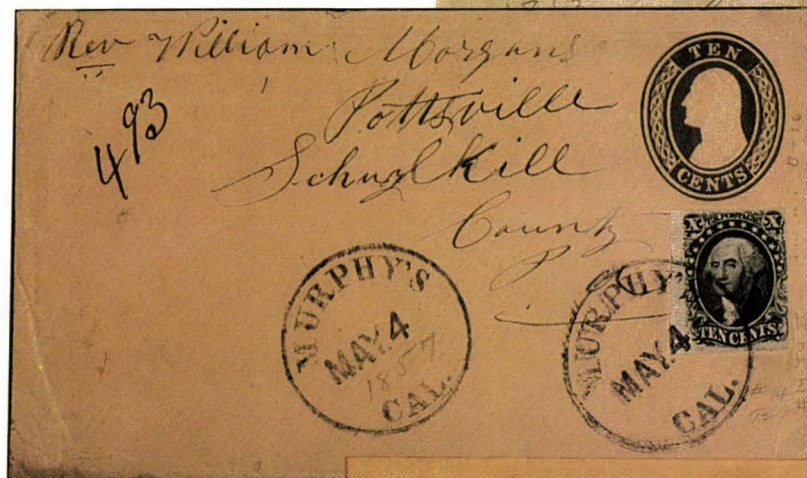 Rev William Morgans
Pottsville
Schuylkill
County
P
493
TEN
CENTS
U.S. POSTAGE
X X
TEN CENTS
MURPHY'S
MAY 4
1857
CAL.
MURPHY'S
MAY 4
CAL.